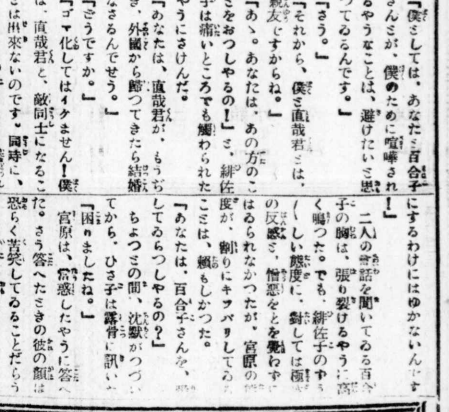 「僕としては、あなたと百合子
さんとが、僕のために喧嘩され
るやうなことは、避けたいと思
つてゐるんです。」
「さう。」
「それから、僕と直哉君とは、
親友ですからね。」
「あゝ。あなたは、あの方のこ
とをおつしやるの！」と、緋佐
子は痛いところでも觸わられた
やうにさけんだ。
「あなたは、直哉君が、もうぢ
き、外國から歸つてきたら結婚
なさるんでせう。」
「さうですか。」
「ゴマ化してはイケません！僕
は、直哉君と、敵同士になるこ
とは出來ないのです。同時に、
にするわけにはゆかないんです
！」
二人の會話を聞いてゐる百合
子の胸は、張り裂けるやうに高
く鳴つた。でも、緋佐子のずう
〳〵しい態度に、對しては極度
の反感と、憎惡をとを覺わずに
はゐられなかつたが、宮原の態
度が、割りにキツパリしてゐる
ことは、頼もしかつた。
「あなたは、百合子さんを、
してゐらつしやるの？」
ちよつとの間、沈默がつづい
てから、ひさ子は露骨に訊いた
「困りましたね。」
宮原は、當惑したやうに答へ
た。さう答へたときの彼の顔は
恐らく苦笑してゐることだらう